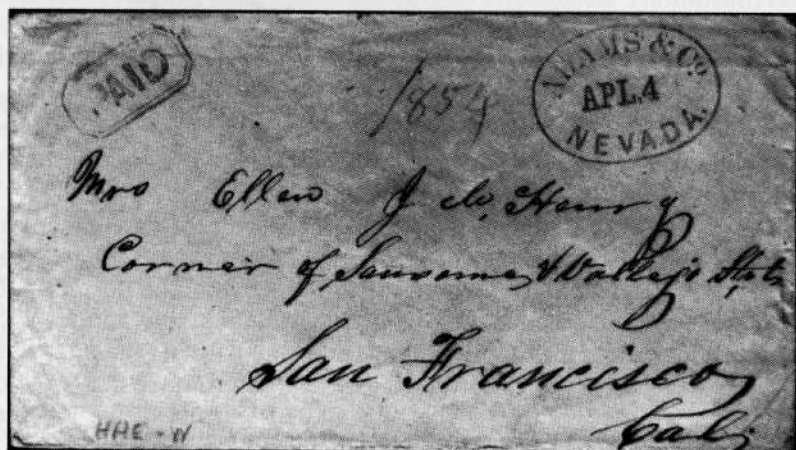 PAID
1854
ADAMS & Co.
APL. 4
NEVADA.
Mrs Ellen J. Mc. Henry
Corner of Sansome & Vallejo Sts
San Francisco
Cali
HHE - N